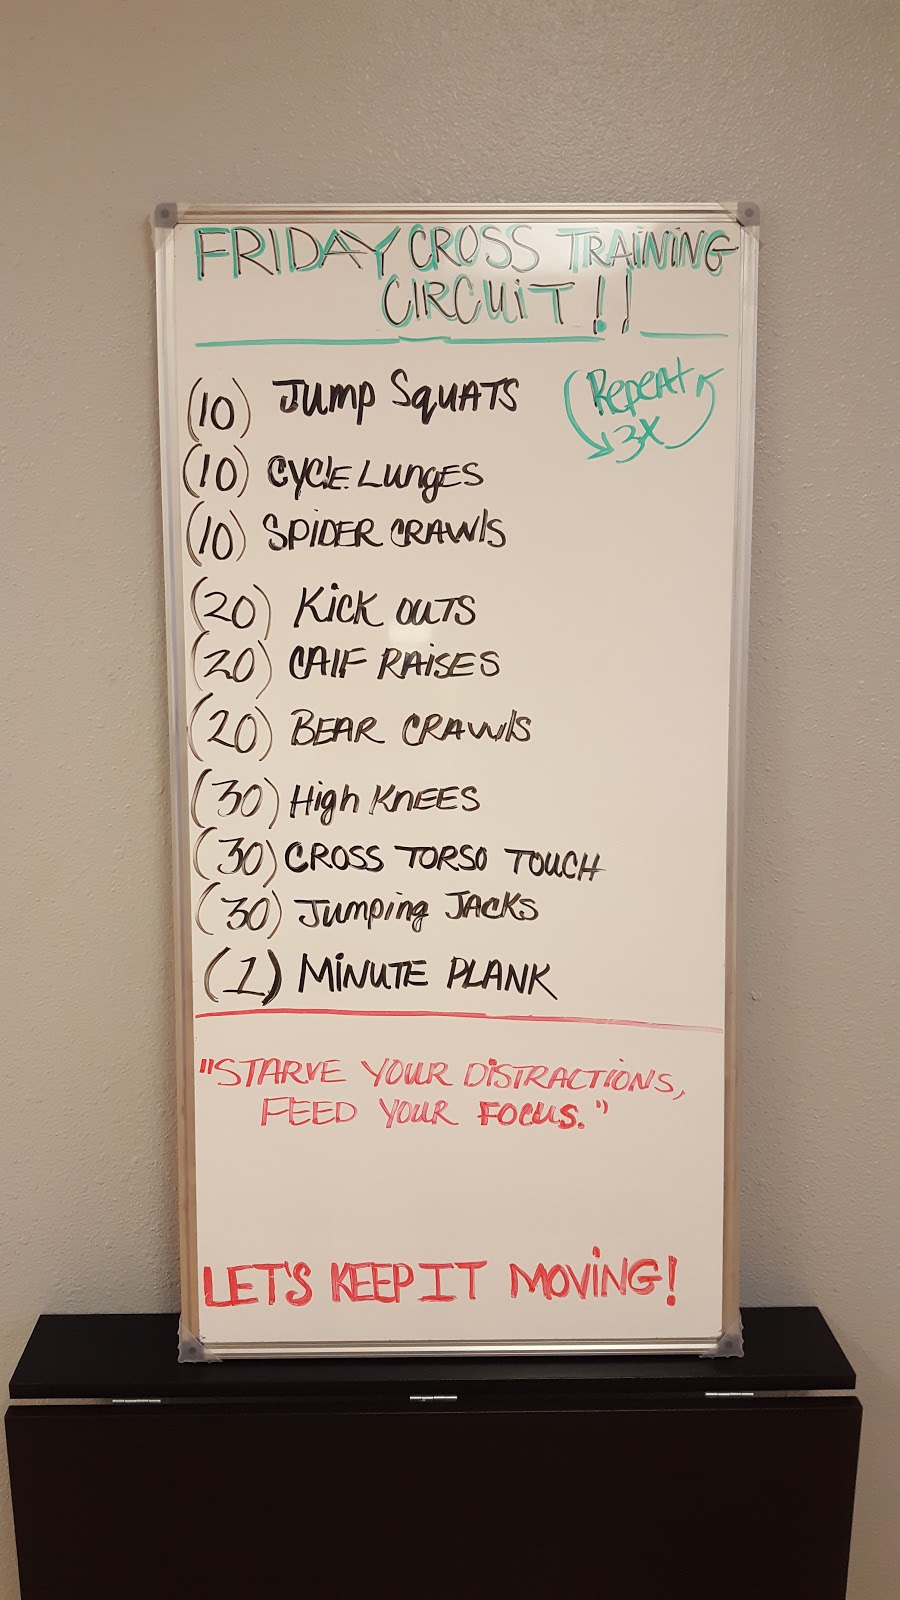 FRIDAY CROSS TRAINING
CIRCUIT!!
Repeat
3X
(10) Jump Squats
(10) CYCLE Lunges
(10) SPIDER CRAWls
(20) Kick outs
(20) CAlF RAisES
(20) BEAR CRAWls
(30) High KNEES
(30) CROSS TORSO TOUCH
(30) Jumping JACKS
(1) MiNUTE PLANK
"STARVE YOUR DiSTRACTiONS,
FEED YOUR FOCUS."
LET'S KEEP IT MOViNG!